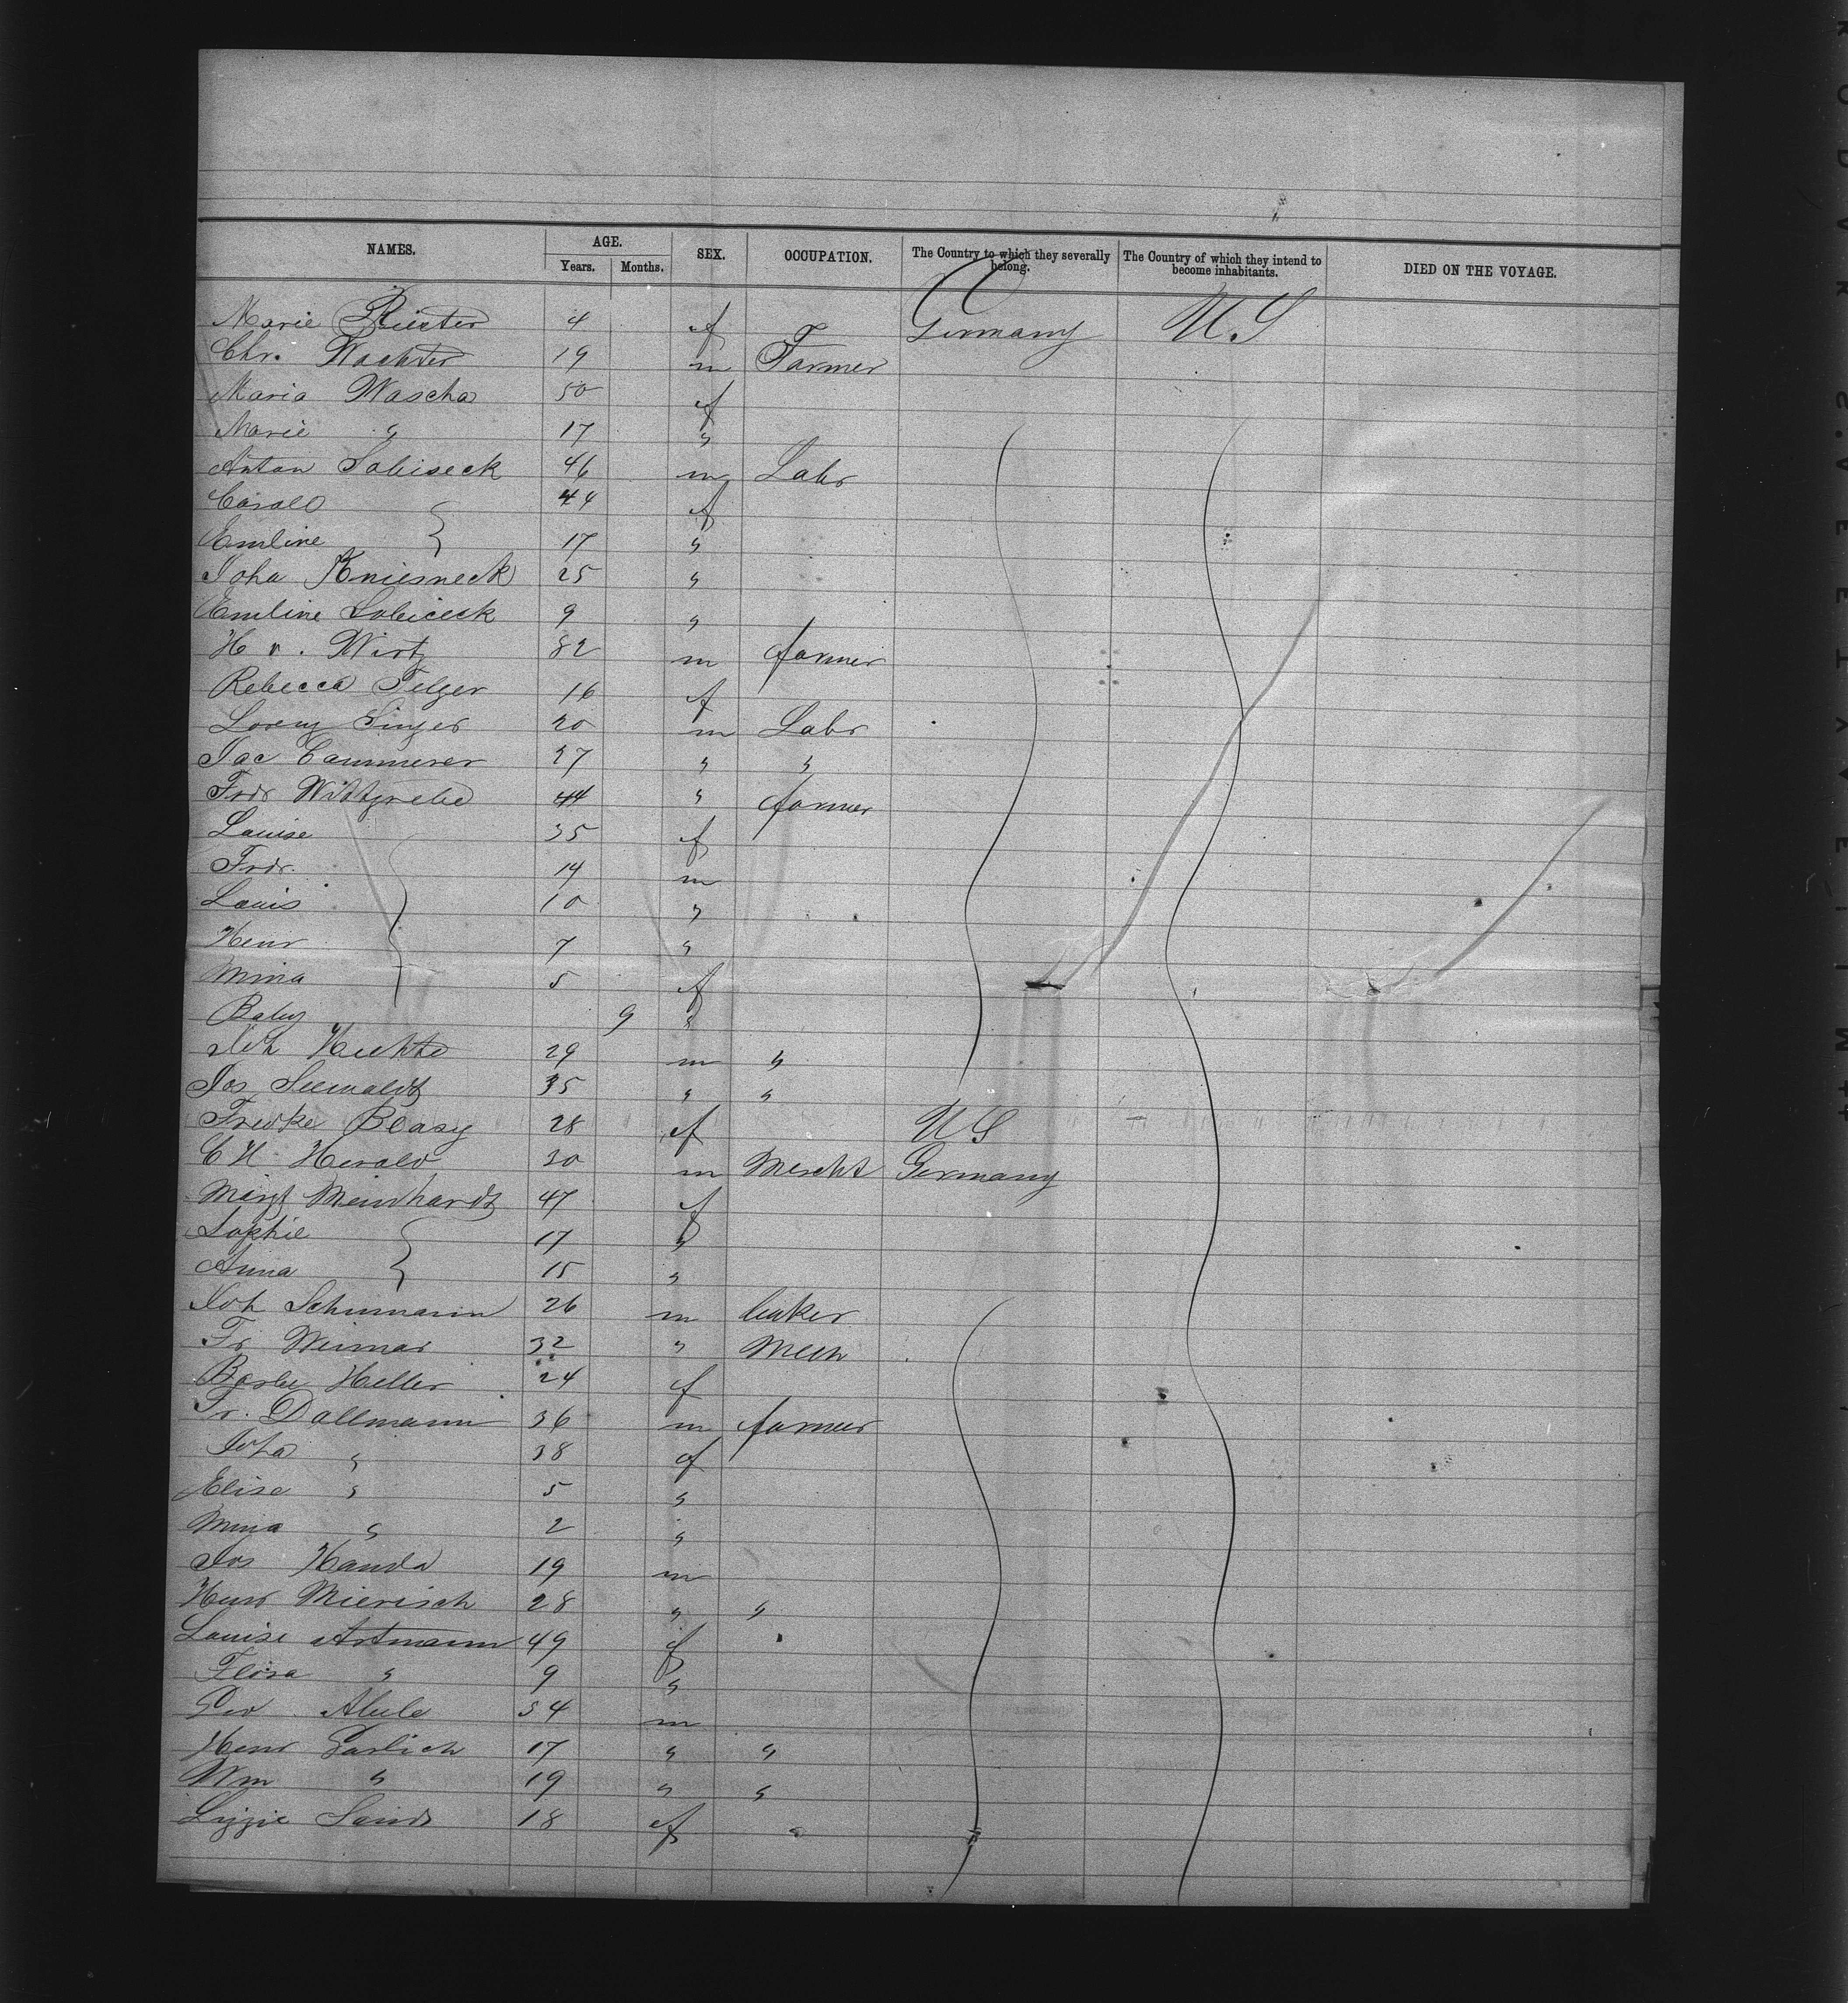 NAMES. AGE. SEX. OCCUPATION. The Country to which they severally belong. The Country of which they intend to become inhabitants. DIED ON THE VOYAGE.
Years. Months.
Marie 4 f Germany U S
Chr. Wachter 19 m Farmer
Maria Wascha 50 f
Marie " 17 "
Anton 46 m Labr
44 f
Emline 17 "
Joha Kniesneck 25 "
Emline 9 "
H v. Wirtz 82 m farmer
Rebecca Telger 16 f
Lorenz Singer 20 m Labr
Jac Cammerer 27 " "
Frdr Wittgrebe 44 " farmer
Louise 35 f
Frdr. 14 m
Louis 10 "
Henr 7 "
Mina 5 f
Baby 9 "
Joh 29 m "
Jos Seewaldt 35 " "
28 f U S
C H Herald 30 m Mercht Germany
Margt Meinhardt 47 f
Sophie 17 "
Anna 15 "
Joh Schumann 26 m baker
Fr Weimar 32 " Mech
Barbe Heller 24 f
Fr. Dallmann 36 m farmer
Joha " 38 f
Elise " 5 "
" 2 "
Jos Handa 19 m
Henr Mierisch 28 " "
Louise Artmann 49 f
Flora " 9 "
Abele 54 m
Henr Garlich 17 " "
Wm " 19 " "
Lizzie 18 f "